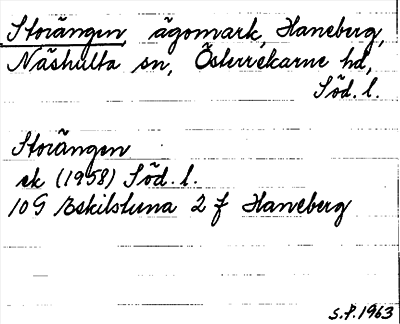 Storängen ägomark, Haneberg,
Näshulta sn, Österrekarne hd,
Söd. l.
Storängen
ek (1958) Söd. l.
10G Eskilstuna 2 f Haneberg
S.P. 1963